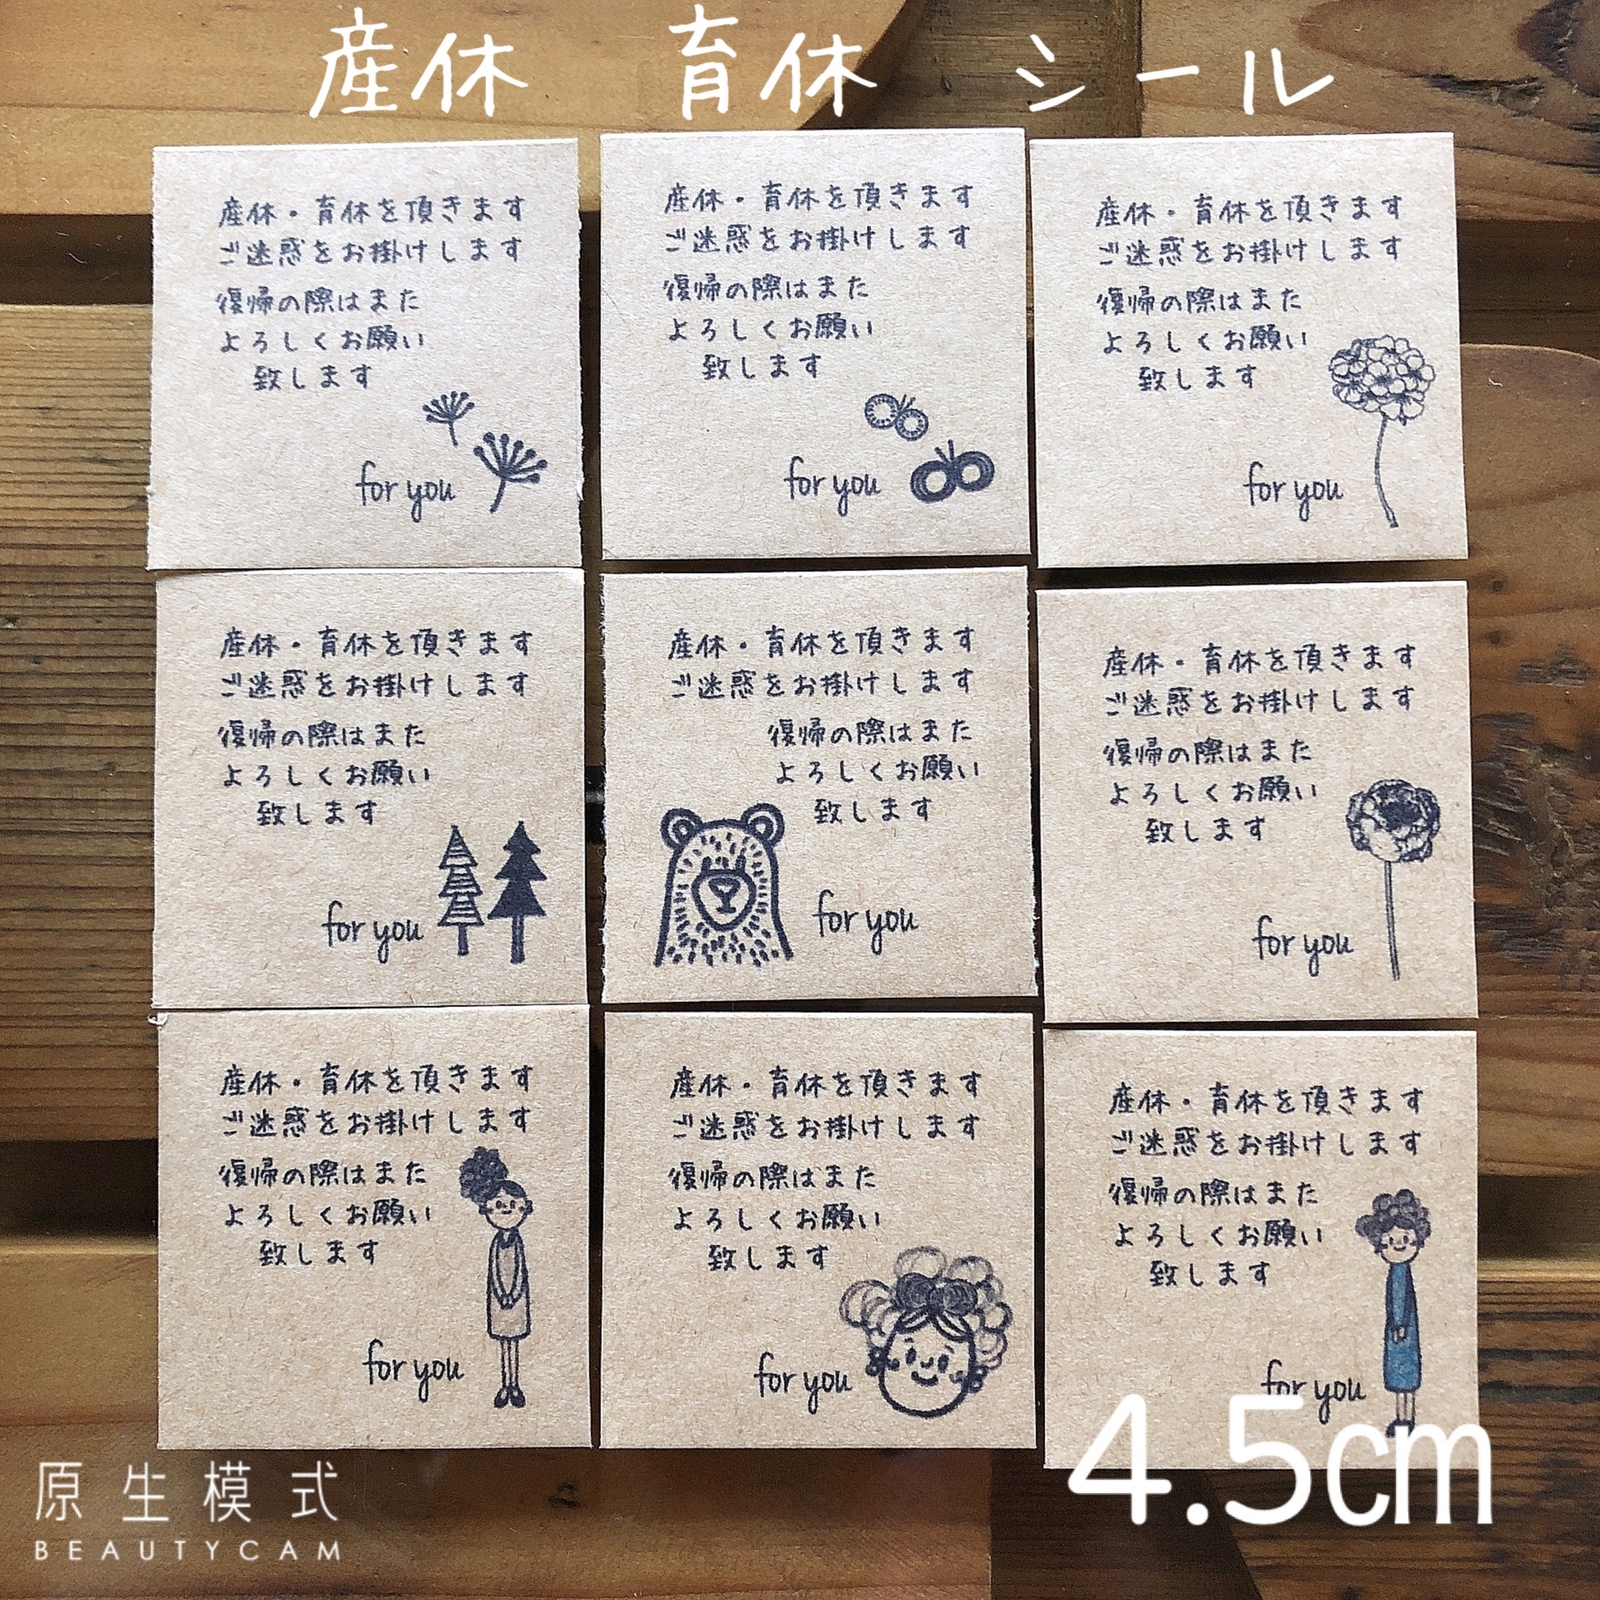 産休　育休　シール
産休・育休を頂きます
ご迷惑をお掛けします
復帰の際はまた
よろしくお願い
致します
for you
産休・育休を頂きます
ご迷惑をお掛けします
復帰の際はまた
よろしくお願い
致します
for you
産休・育休を頂きます
ご迷惑をお掛けします
復帰の際はまた
よろしくお願い
致します
for you
産休・育休を頂きます
ご迷惑をお掛けします
復帰の際はまた
よろしくお願い
致します
for you
産休・育休を頂きます
ご迷惑をお掛けします
復帰の際はまた
よろしくお願い
致します
for you
産休・育休を頂きます
ご迷惑をお掛けします
復帰の際はまた
よろしくお願い
致します
for you
産休・育休を頂きます
ご迷惑をお掛けします
復帰の際はまた
よろしくお願い
致します
for you
産休・育休を頂きます
ご迷惑をお掛けします
復帰の際はまた
よろしくお願い
致します
for you
産休・育休を頂きます
ご迷惑をお掛けします
復帰の際はまた
よろしくお願い
致します
for you
4.5cm
原生模式
BEAUTYCAM